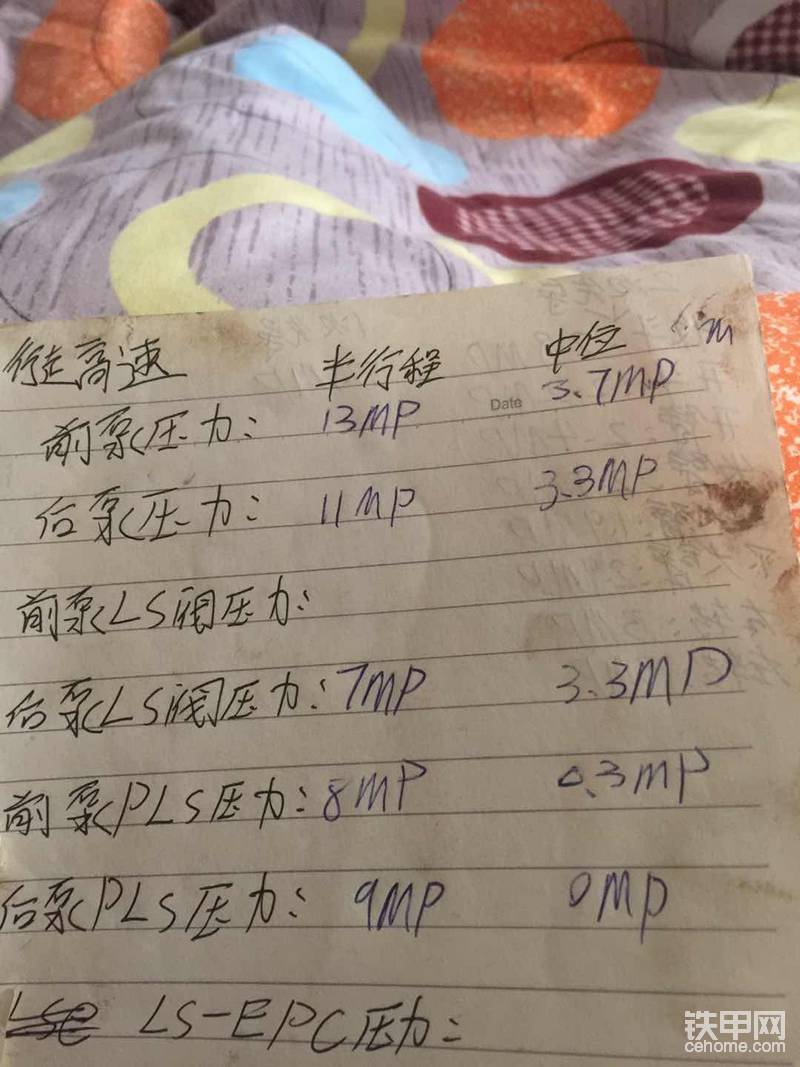 行走高速 半行程 中位
Date
前泵压力: 13MP 3.7MP
后泵压力: 11MP 3.3MP
前泵LS阀压力:
后泵LS阀压力: 7MP 3.3MP
前泵PLS压力: 8MP 0.3MP
后泵PLS压力: 9MP 0MP
LS-EPC压力:
铁甲网
cehome.com